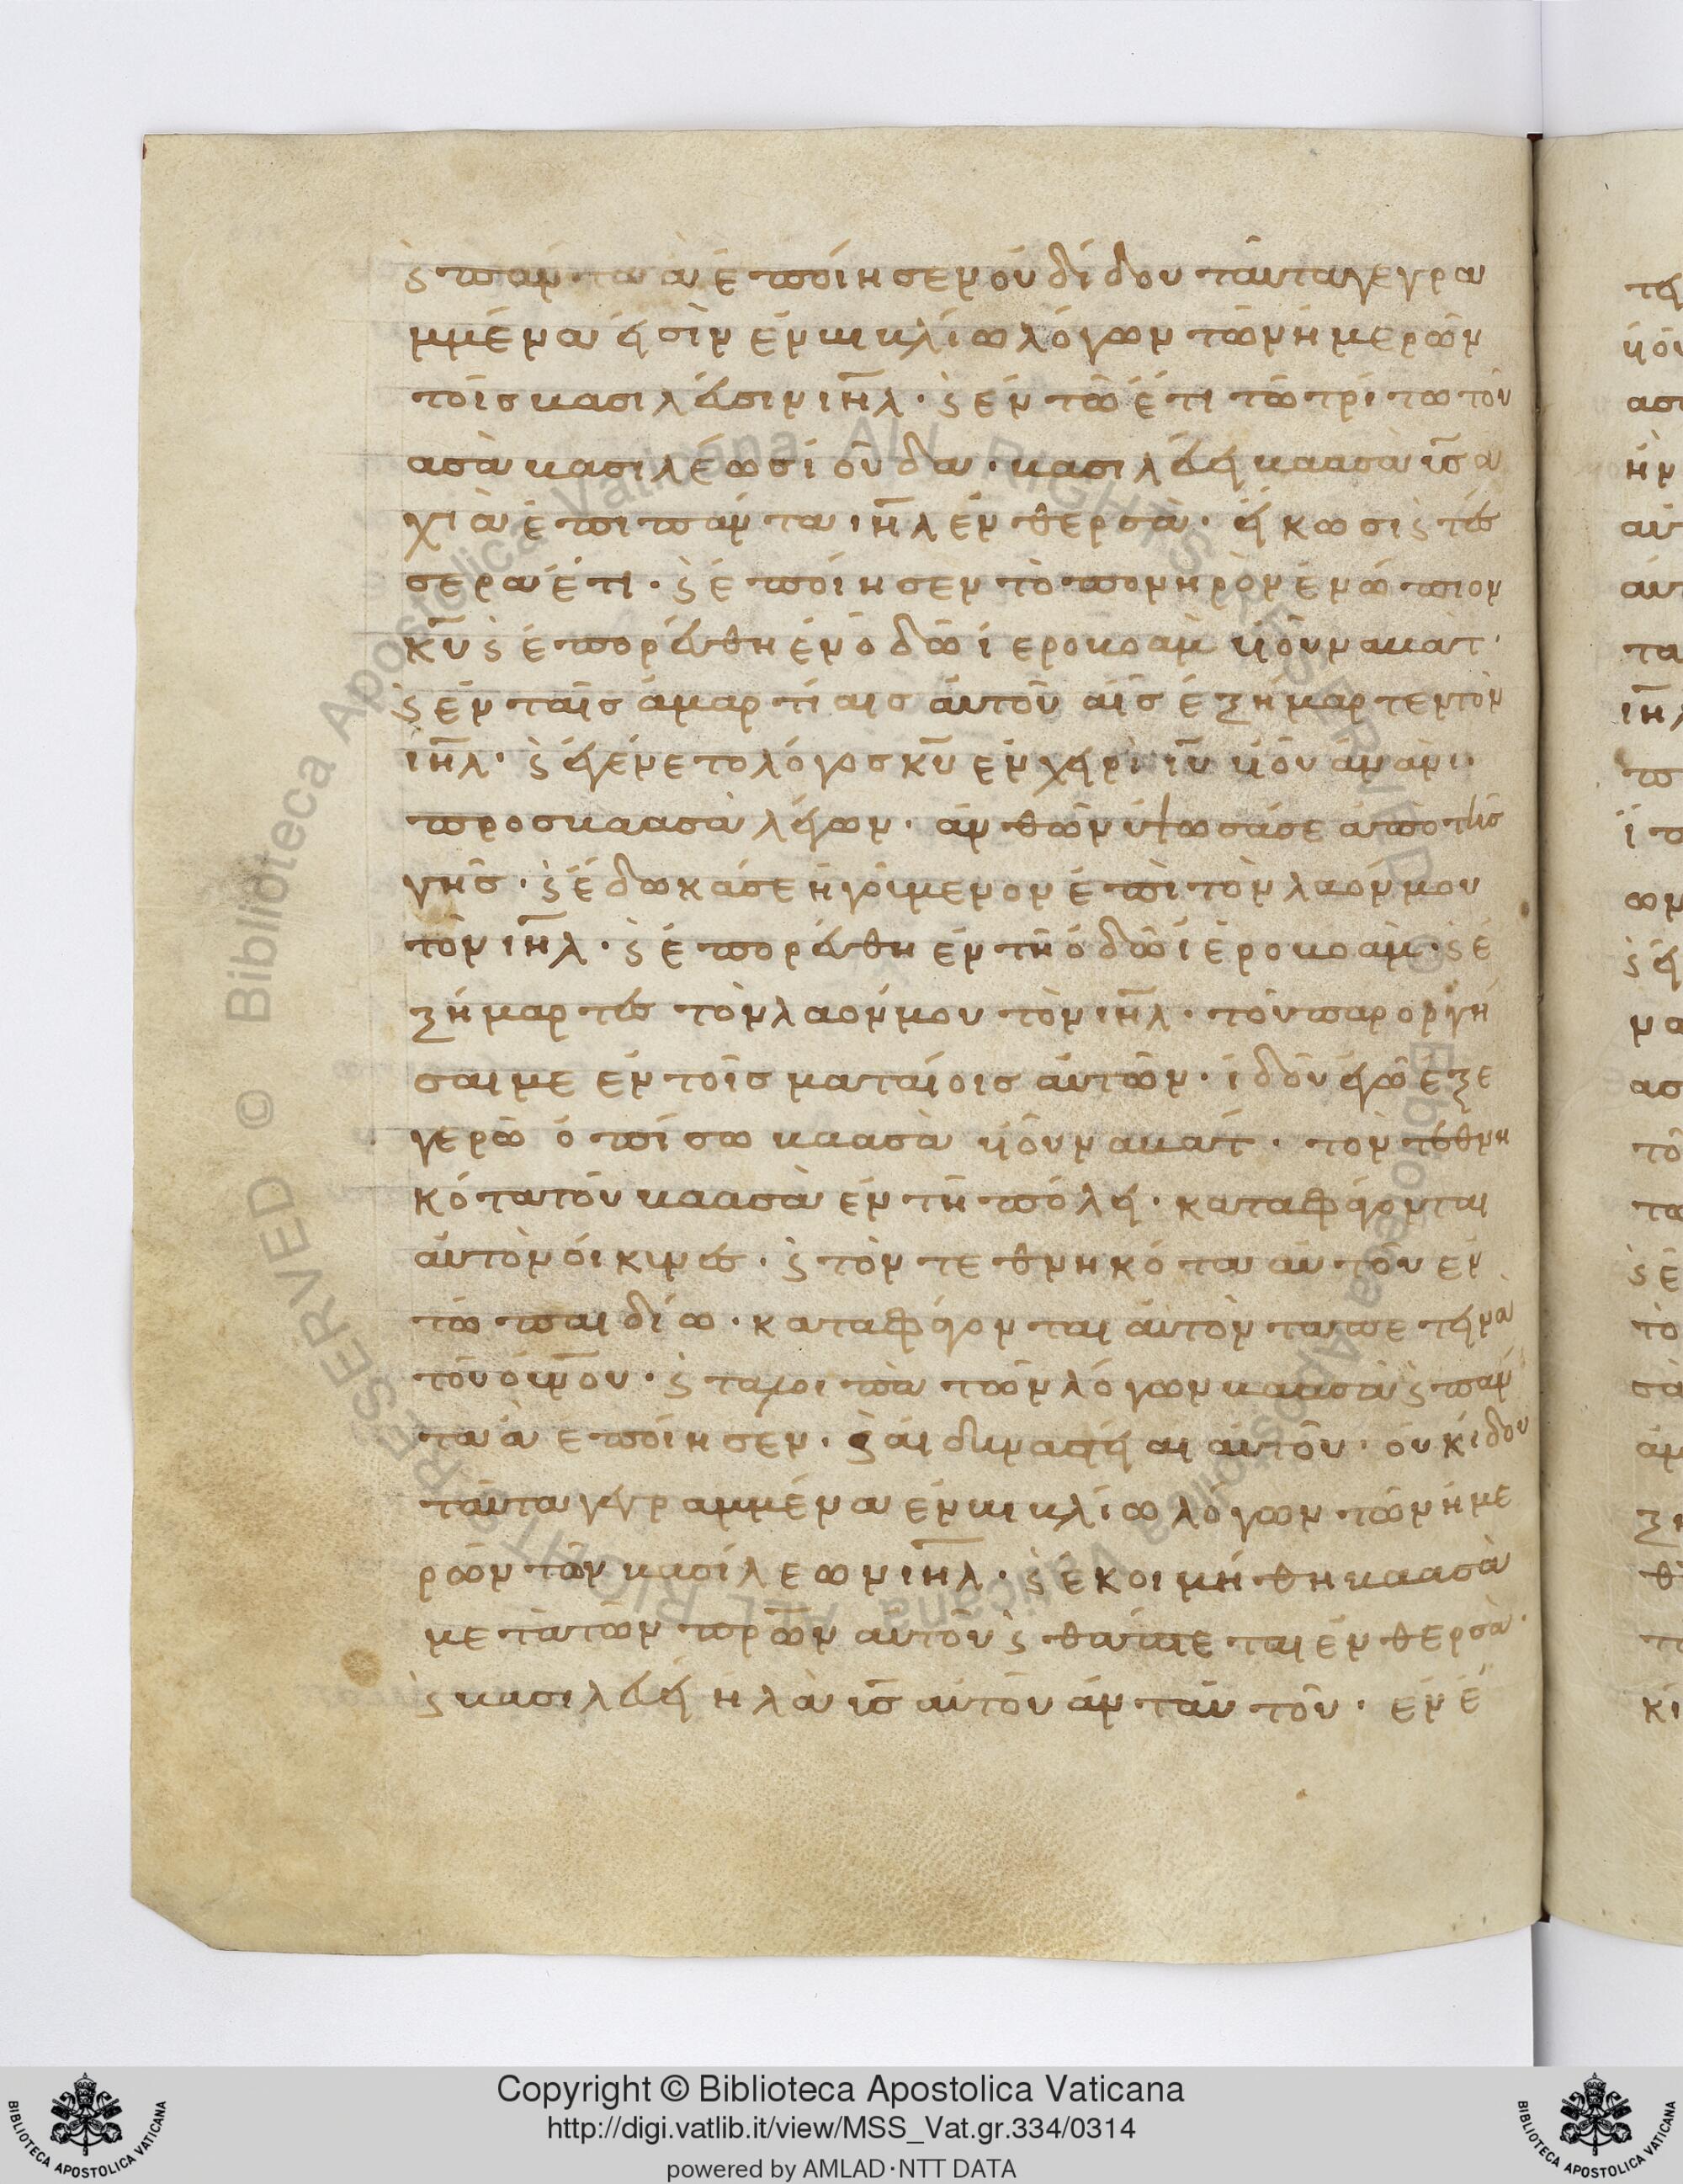 ϛ̀ πάντα ἃ ἐποίησεν οὐδίδου ταῦτα γεγρα
μμένα ἐισὶν ἐν βιβλίω λόγων τῶν ἡμερῶν
τοῖς βασιλεῦσιν ι̅η̅λ̅· ϛ̀ ἐν τῶ ἔτει τῶ τρίτω τοῦ
ασὰ βασιλέωσ ἰούδα· βασιλεύει βαασὰ υ̅σ̅ α
χιὰ ἐπὶ πάντα ι̅η̅λ̅ ἐν θερσὰ· εἴκωσι ϛ τέσ
σερα ἔτι· ϛ̀ ἐποίησεν τὸ πονηρὸν ἐνώπιον
κ̅υ̅ ϛ̀ ἐπορεύθη ἐν ὁδῶ ἱεροβοαμ υἱοῦ ναβατ·
ϛ̀ ἐν ταῖσ ἁμαρτίαισ αὐτοῦ αἷσ ἐξήμαρτεν τὸν
ι̅η̅λ̅· ϛ̀ ἐγένετο λόγοσ κ̅υ̅ ἐν χειρὶ ιου υἱοῦ ἀνανι·
προσ βαασὰ λέγων· ἀνθῶν ὕψωσάσε ἀπὸ τῆσ
γῆσ· ϛ̀ ἔδωκάσε ἡγούμενον ἐπὶ τὸν λαόν μου
τὸν ι̅η̅λ̅· ϛ̀ ἐπορεύθη ἐν τῆ ὁδῶ ἱεροβοαμ· ϛ̀ ἐ
ξήμαρτεσ τὸν λαόν μου τὸν ι̅η̅λ̅· τοῦ παροργή
σαι με ἐν τοῖσ ματαίοισ αὐτῶν· ἰδοῦ ἐγὼ ἐξε
γερῶ ὀπίσω βαασὰ υἱοῦ ναβατ· τὸν τεθνη
κότα τοῦ βαασὰ ἐν τῆ πόλει· καταφάγονται
αὐτὸν οἱ κύνεσ· ϛ̀ τὸν τεθνηκότα αὐτοῦ ἐν
τῶ παιδίω· καταφάγονται αὐτὸν τα πετεινὰ
τοῦ ο̅υ̅ν̅ου· ϛ̀ τα λοιπὰ τῶν λόγων βαασὰ ϛ̀ πάν
τα ἃ ἐποίησεν· ϛ̀ αἱ δυναστεῖαι αὐτοῦ· οὐκ ἰδοῦ
ταῦτα γεγραμμένα ἐν βιβλίω λόγων τῶν ἡμε
ρῶν τῶν βασιλέων ι̅η̅λ̅· ϛ̀ ἐκοιμήθη βαασὰ
μετὰ τῶν π̅ρ̅ω̅ν̅ αὐτοῦ ϛ̀ θάπτεται ἐν θερσὰ·
ϛ̀ βασιλεύει ηλὰ υ̅σ̅ αὐτοῦ ἀντ αὐτοῦ· ἐν ἔ
Copyright © Biblioteca Apostolica Vaticana
http://digi.vatlib.it/view/MSS_Vat.gr.334/0314
powered by AMLAD·NTT DATA